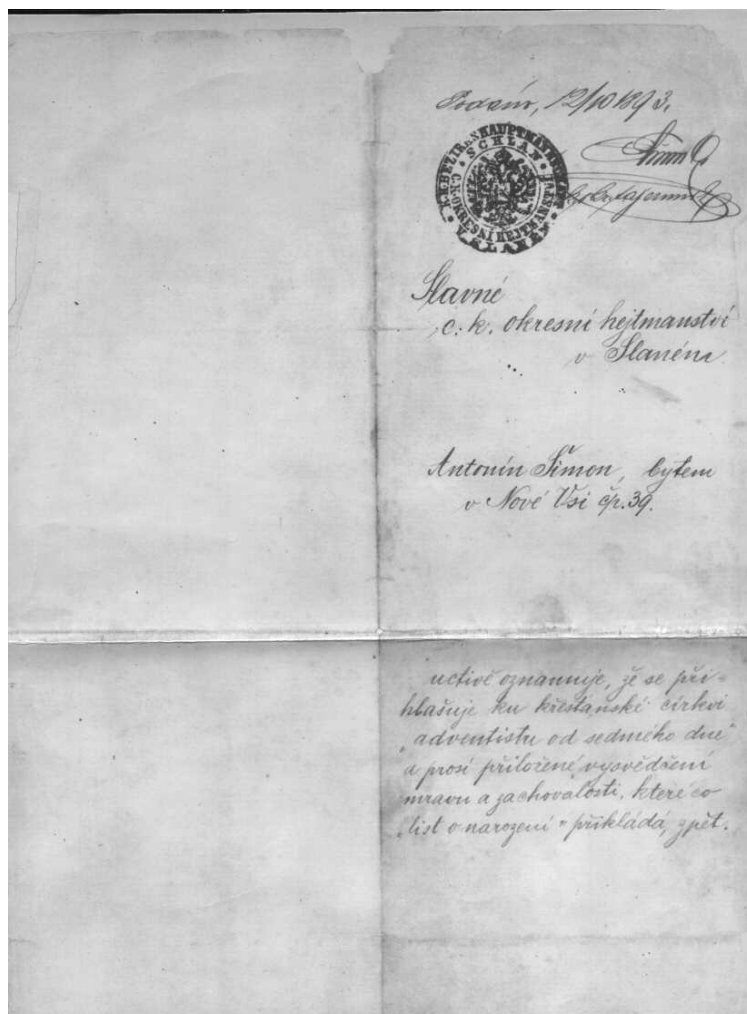 Podáno, 12/10 1893.
K.K. BEZIRKSHAUPTMANNSCHAFT
SCHLAN
C.K. OKRESNÍ HEJTMANSTVÍ
V SLANÉM
Slavné
c. k. okresní hejtmanství
v Slaném
Antonín Šimon, bytem
v Nové Vsi čp. 39.
uctivě oznamuje, že se při-
hlašuje ku křesťanské církvi
„adventistu od sedmého dne“
a prosí přiložené vysvědčení
mravu a zachovalosti, které co
„list o narození“ přikládá, zpět.